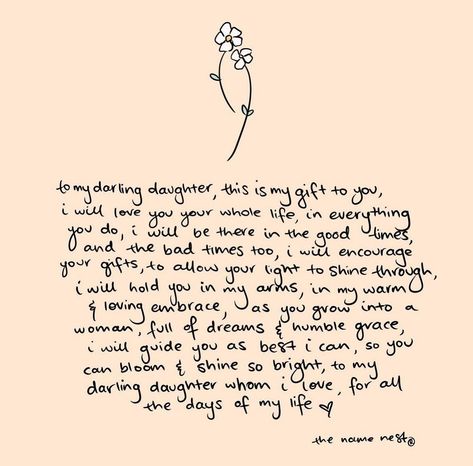 to my darling daughter, this is my gift to you,
i will love you your whole life, in everything
you do, i will be there in the good times,
and the bad times too, i will encourage
your gifts, to allow your light to shine through,
i will hold you in my arms, in my warm
& loving embrace, as you grow into a
woman, full of dreams & humble grace,
i will guide you as best i can, so you
can bloom & shine so bright, to my
darling daughter whom i love, for all
the days of my life ♡
the name nest©